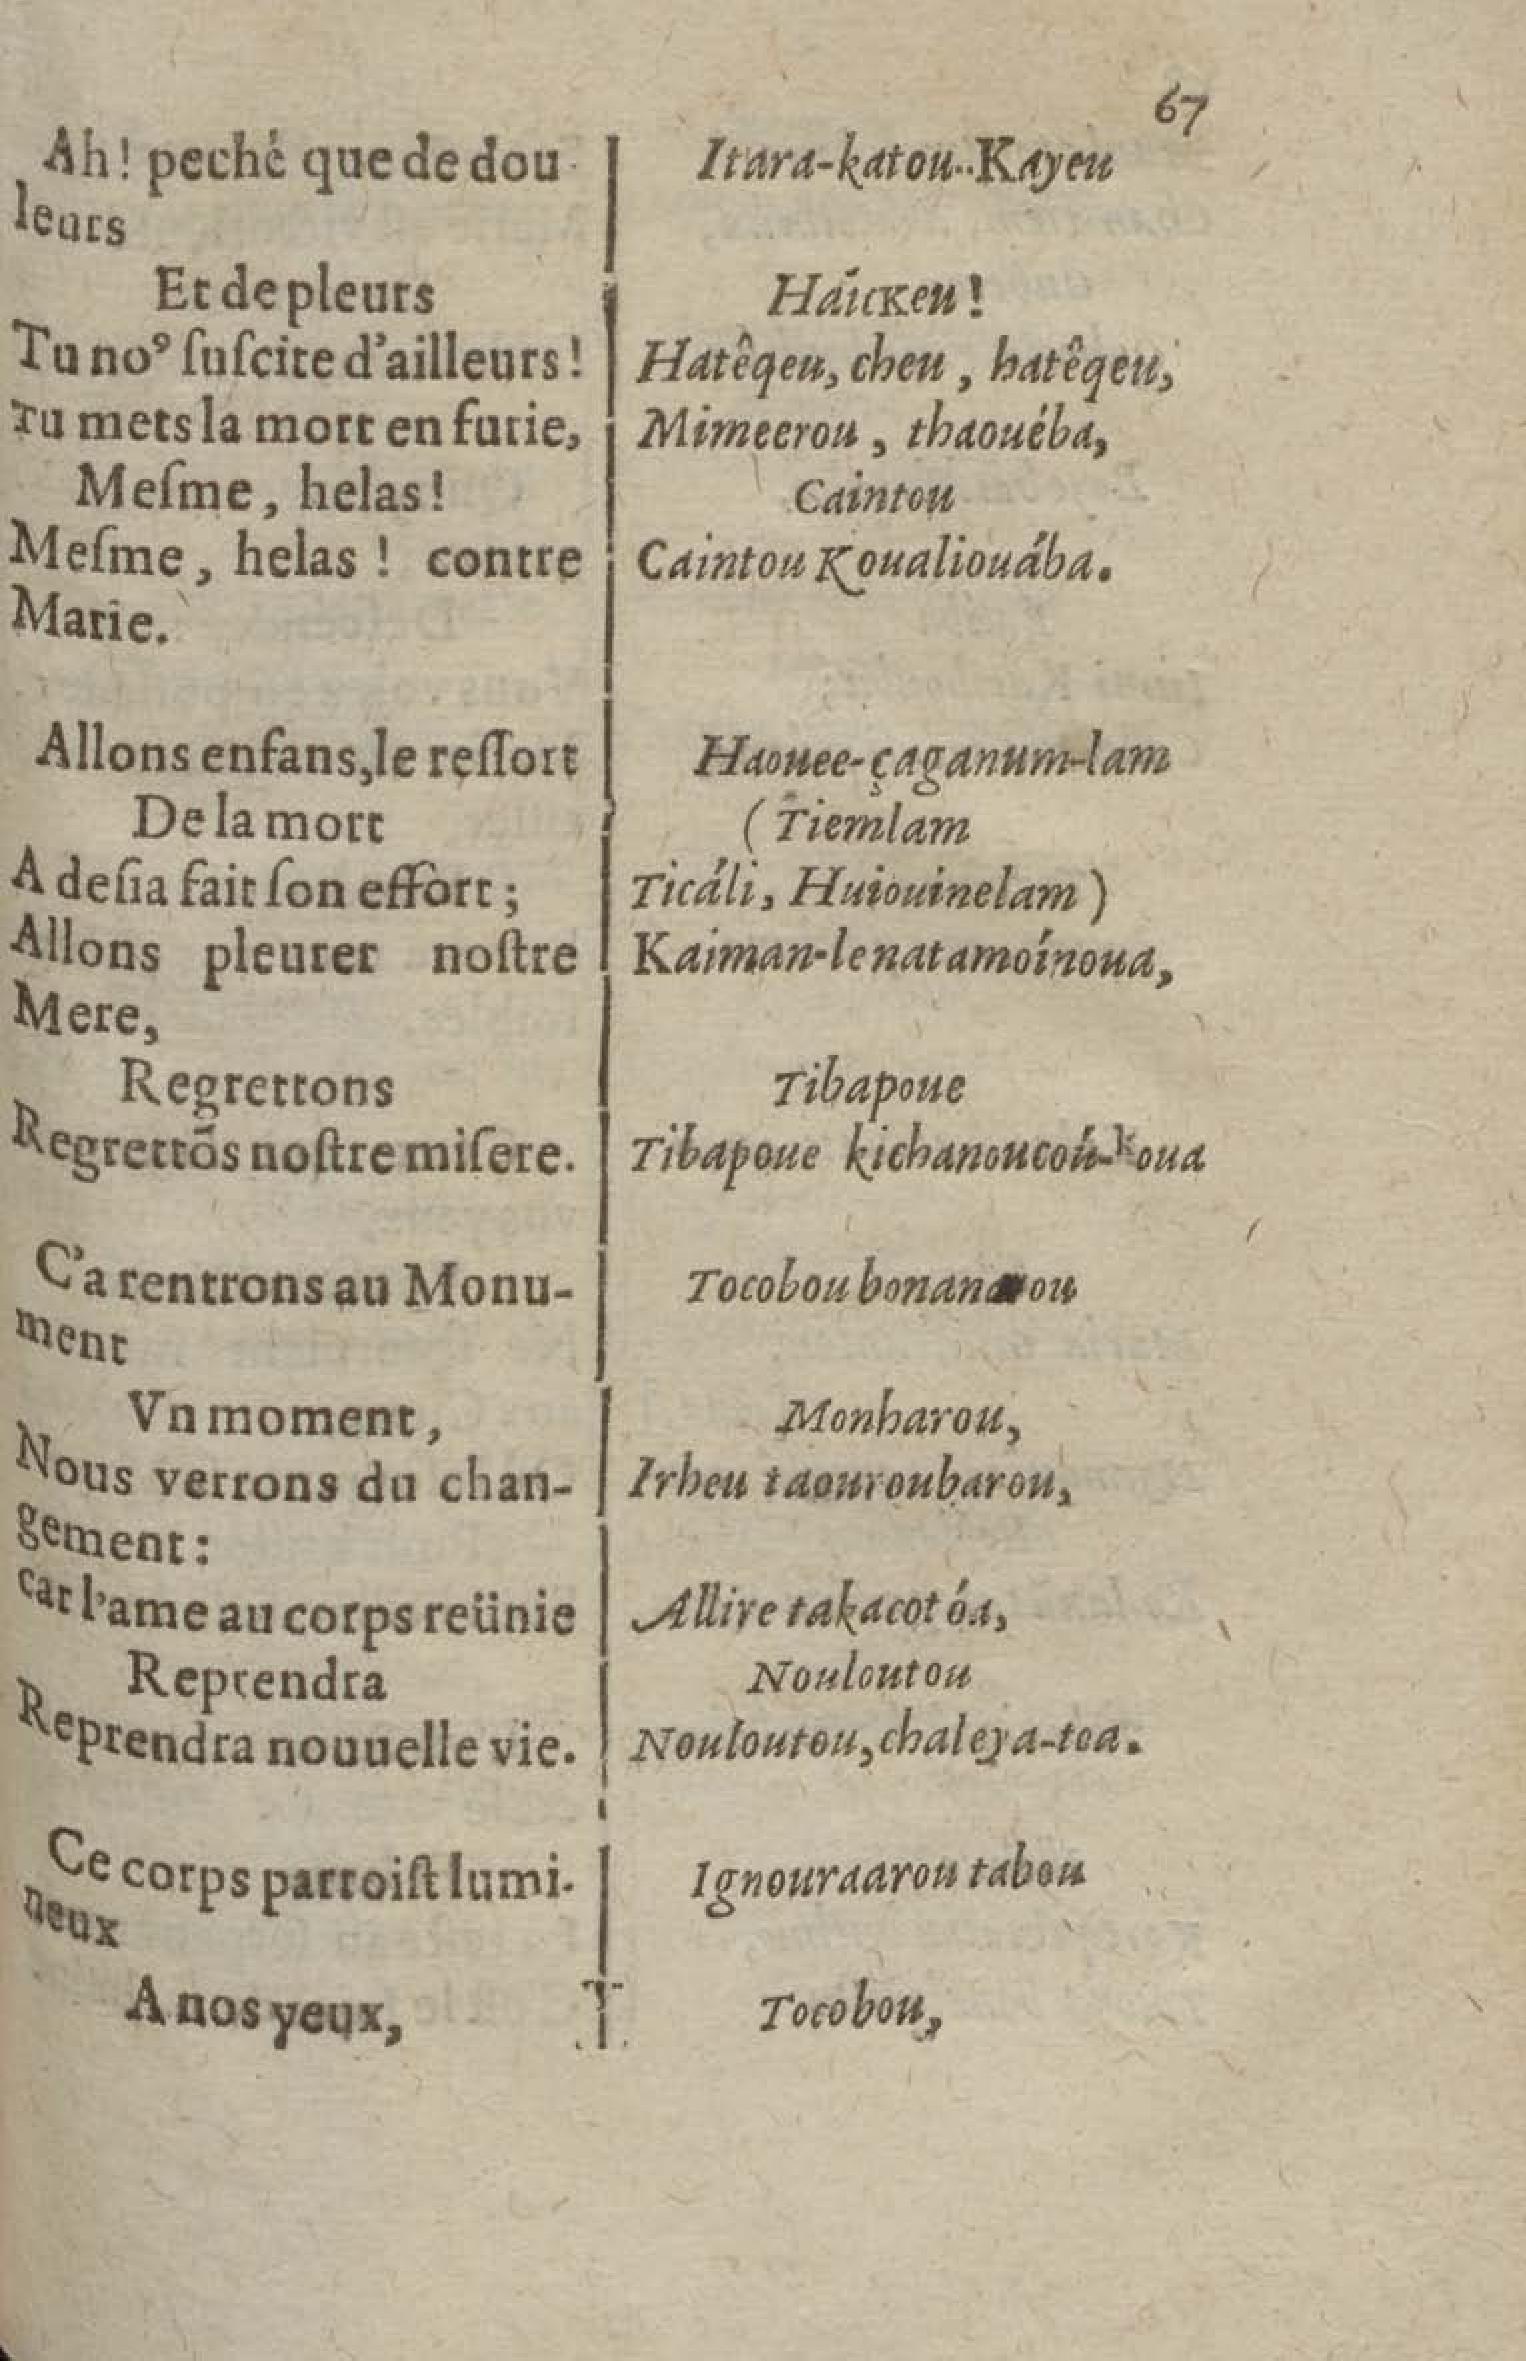 67
Ah! peché que de dou-
leurs
Et de pleurs
Tu noꝰ ſuſcite d'ailleurs!
Tu mets la mort en furie,
Meſme, helas!
Meſme, helas! contre
Marie.
Allons enfans, le reſſort
De la mort
A deſia fait ſon effort;
Allons pleurer noſtre
Mere,
Regrettons
Regrettõs noſtre miſere.
C'a rentrons au Monu-
ment
Vn moment,
Nous verrons du chan-
gement:
car l'ame au corps reünie
Reprendra
Reprendra nouuelle vie.
Ce corps parroiſt lumi-
neux
A nos yeux,
Itara-katou-Kayeu
Háicĸeu!
Hatêqeu, cheu, hatêqeu,
Mimeerou, thaouéba,
Caintou
Caintou Koualiouába.
Haouee-çaganum-lam
(Tiemlam
Ticáli, Huiouinelam)
Kaiman-lenatamoínoua,
Tibapoue
Tibapoue kichanoucoú-koua
Tocobou
Monharou,
Irheu taouroubarou,
Allire takacotóa,
Nouloutou
Nouloutou, chaleya-toa.
Ignouraarou tabou
Tocobou,